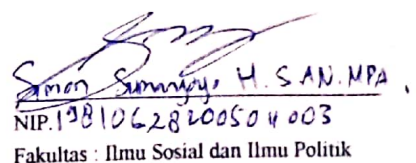 Simon Sumanjoyo H. S.AN. MPA.
NIP.198106282005011003
Fakultas : Ilmu Sosial dan Ilmu Politik